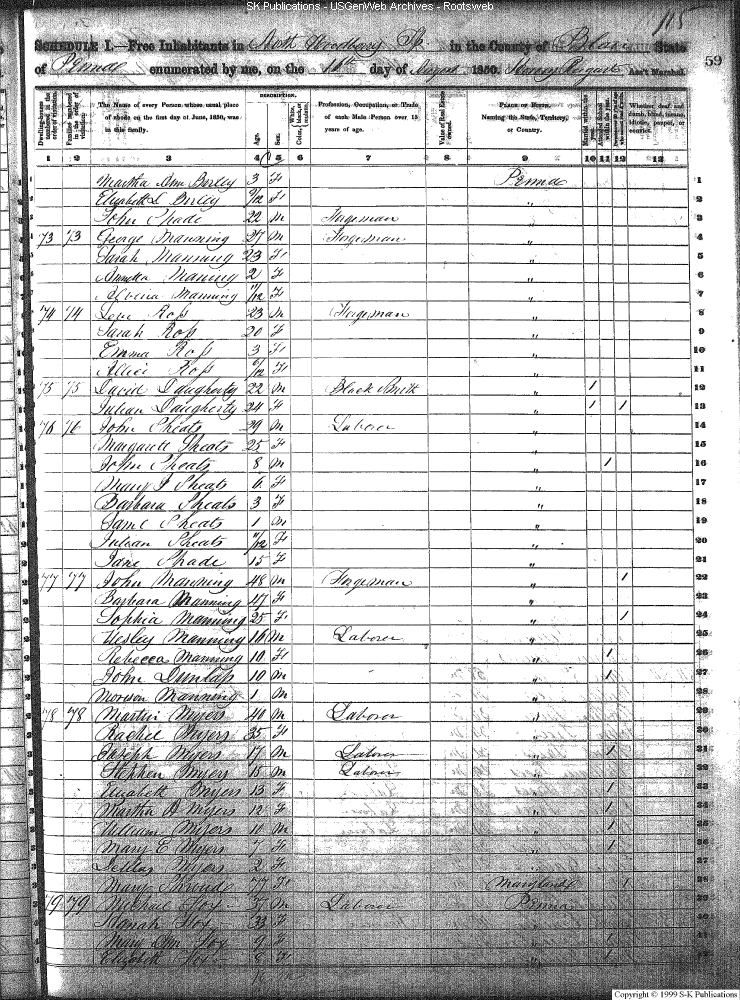 SK Publications - USGenWeb Archives - Rootsweb
115
59
SCHEDULE I.—Free Inhabitants in North Woodberry Tp in the County of Blair State
of Penna enumerated by me, on the day of August 1850. Ass't Marshal.
DESCRIPTION.
Dwelling-houses numbered in the order of visitation.
Families numbered in the order of visitation.
The Name of every Person whose usual place of abode on the first day of June, 1850, was in this family.
Age.
Sex.
Color, White, black, or mulatto.
Profession, Occupation, or Trade of each Male Person over 15 years of age.
Value of Real Estate owned.
PLACE OF BIRTH. Naming the State, Territory, or Country.
Married within the year.
Attended School within the year.
Whether deaf and dumb, blind, insane, idiotic, pauper, or convict.
1 2 3 4 5 6 7 8 9 10 11 12 13
Martha Ann 3 F Penna 1
Elizabeth 2/12 F " 2
John Shade 22 M Forgeman " 3
73 73 George Manning 27 M Forgeman " 4
Sarah Manning 23 F " 5
Manning 2 F " 6
Manning 11/12 F " 7
74 74 Ross 23 M Forgeman " 8
Sarah Ross 20 F " 9
Emma Ross 3 F " 10
Ross F " 11
75 75 David Daugherty 22 M Black Smith " / 12
Julian Daugherty 24 F " / / 13
76 76 John Sheats 29 M Laborer " 14
Margarett Sheats 25 F " 15
John Sheats 8 M " / 16
Mary Sheats 6 F " 17
Barbara Sheats 3 F " 18
Saml Sheats 1 M " 19
Julian Sheats F " 20
Jane Shade 15 F " 21
77 77 John Manning 48 M Forgeman " / 22
Barbara Manning 47 F " 23
Sophia Manning 25 F " / 24
Wesley Manning 16 M Laborer " 25
Rebecca Manning 10 F " / 26
John Dunlap 10 M " / 27
Manning 1 M " 28
78 78 Martin Myers 40 M Laborer " 29
Rachel Myers 35 F "
Joseph Myers 17 M Laborer " /
Stephen Myers 15 M Laborer "
Elizabeth Myers 13 F " /
Martha A Myers 12 F " /
William Myers 10 M " /
Mary E Myers 7 F " /
Myers 2 F "
Mary 77 F Maryland /
79 79 Michael Fox 37 M Laborer Penna
Fox 33 F "
Mary Ann Fox 9 F " /
Elizabeth Fox 8 F " /
Copyright © 1999 S-K Publications